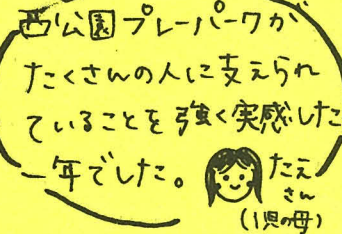 西公園プレーパークが
たくさんの人に支えられ
ていることを強く実感した
一年でした。
たえ
さん
(1児の母)